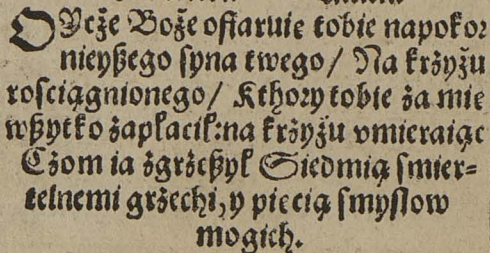 OYcże Boże offiaruie tobie napokor
nieyßego ſyna twego / Na krżyżu
roſciągnionego / Kthory tobie za mie
wßytko zapłacił: na krżyżu vmieraiąc
Czom ia zgrżeßył Siedmią ſmier⸗
telnemi grżechi, y piecią ſmyſlow
mogich.